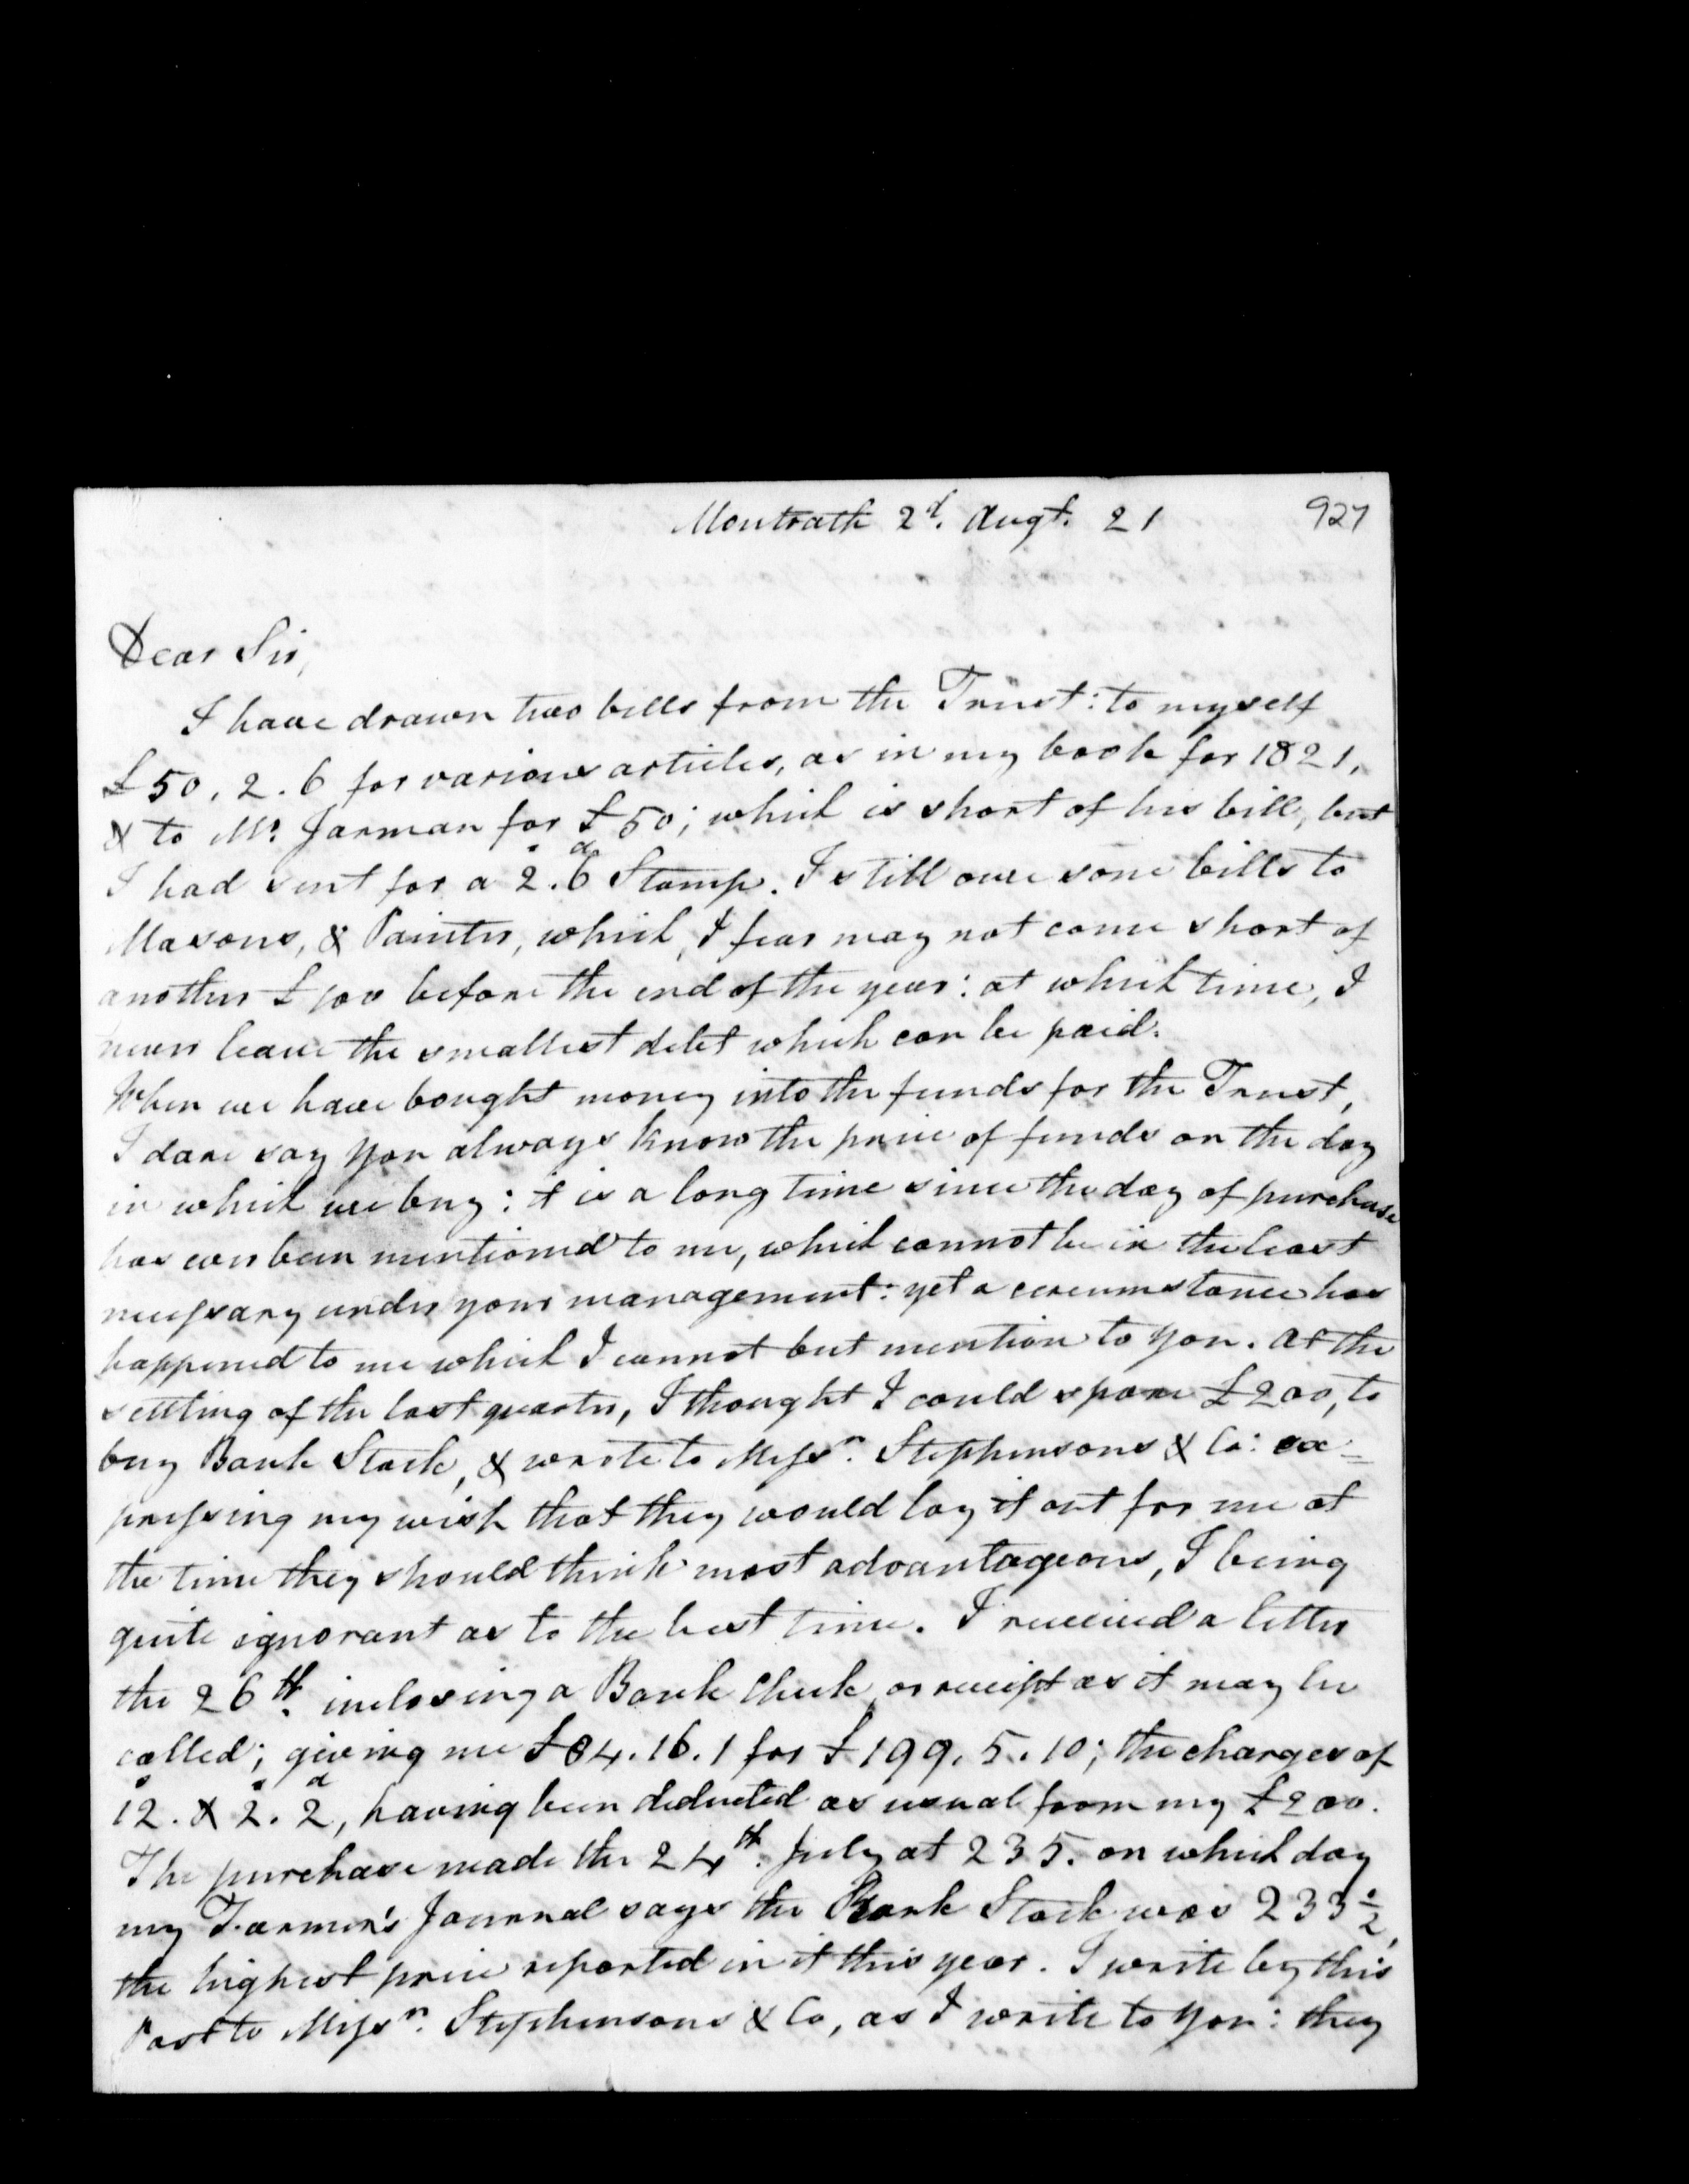 Montrath 2d. Augt. 21
927
Dear Sir,
I have drawn two bills from the Trust: to myself
£50. 2. 6 for various articles, as in my book for 1821,
& to Mr. Jarman for £50; which is short of his bill, but
I had sent for a 2s. 6d Stamp. I still owe some bills to
Masons, & Painter, which, I fear may not come short of
another £100 before the end of the year: at which time, I
never leave the smallest debt which can be paid.
When we have bought money into the funds for the Trust,
I dare say you always know the price of funds on the day
in which we buy: it is a long time since the day of purchase
has ever been mentioned to me, which cannot be in the least
necessary under your management: yet a circumstance has
happened to me which I cannot but mention to you. At the
settling of the last quarter, I thought I could spare £200, to
buy Bank Stock, & wrote to Messrs. Stephensons & Co: ex=
pressing my wish that they would lay it out for me at
the time they should think most advantageous, I being
quite ignorant as to the best time. I received a letter
the 26th. inclosing a Bank Check, or receipt as it may be
called; giving me £84. 16. 1 for £199. 5. 10; the charges of
12s. & 2s. 2d, having been deducted as usual from my £200.
The purchase made the 24th. July at 235. on which day
my Farmer's Journal says the Bank Stock was 233 1/2,
the highest price reported in it this year. I write by this
Post to Messrs. Stephensons & Co, as I write to you: they